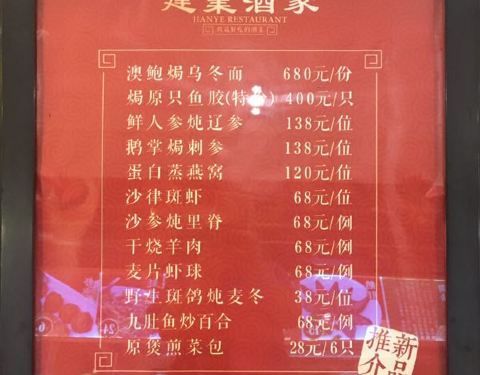 建業酒家
JIANYE RESTAURANT
澳鲍焗乌冬面 680元/份
焗原只鱼胶(特价) 400元/只
鲜人参炖辽参 138元/位
鹅掌焗刺参 138元/位
蛋白蒸燕窝 120元/位
沙律斑虾 68元/位
沙参炖里脊 68元/例
干烧羊肉 68元/例
麦片虾球 68元/例
野生斑鸽炖麦冬 38元/位
九肚鱼炒百合 68元/例
原煲煎菜包 28元/6只
新品
推介